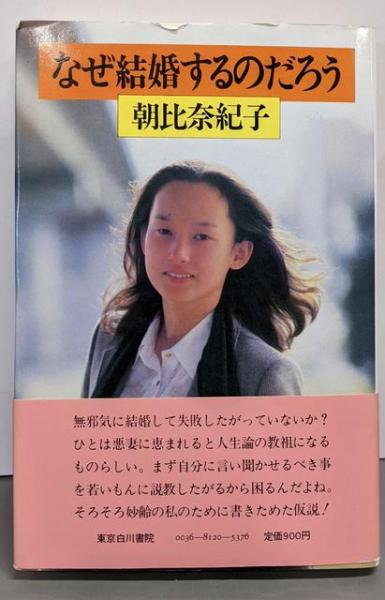 なぜ結婚するのだろう
朝比奈紀子
無邪気に結婚して失敗したがっていないか?
ひとは悪妻に恵まれると人生論の教祖になる
ものらしい。まず自分に言い聞かせるべき事
を若いもんに説教したがるから困るんだよね。
そろそろ妙齢の私のために書きためた仮説!
東京白川書院 0036—8120—5376 定価900円